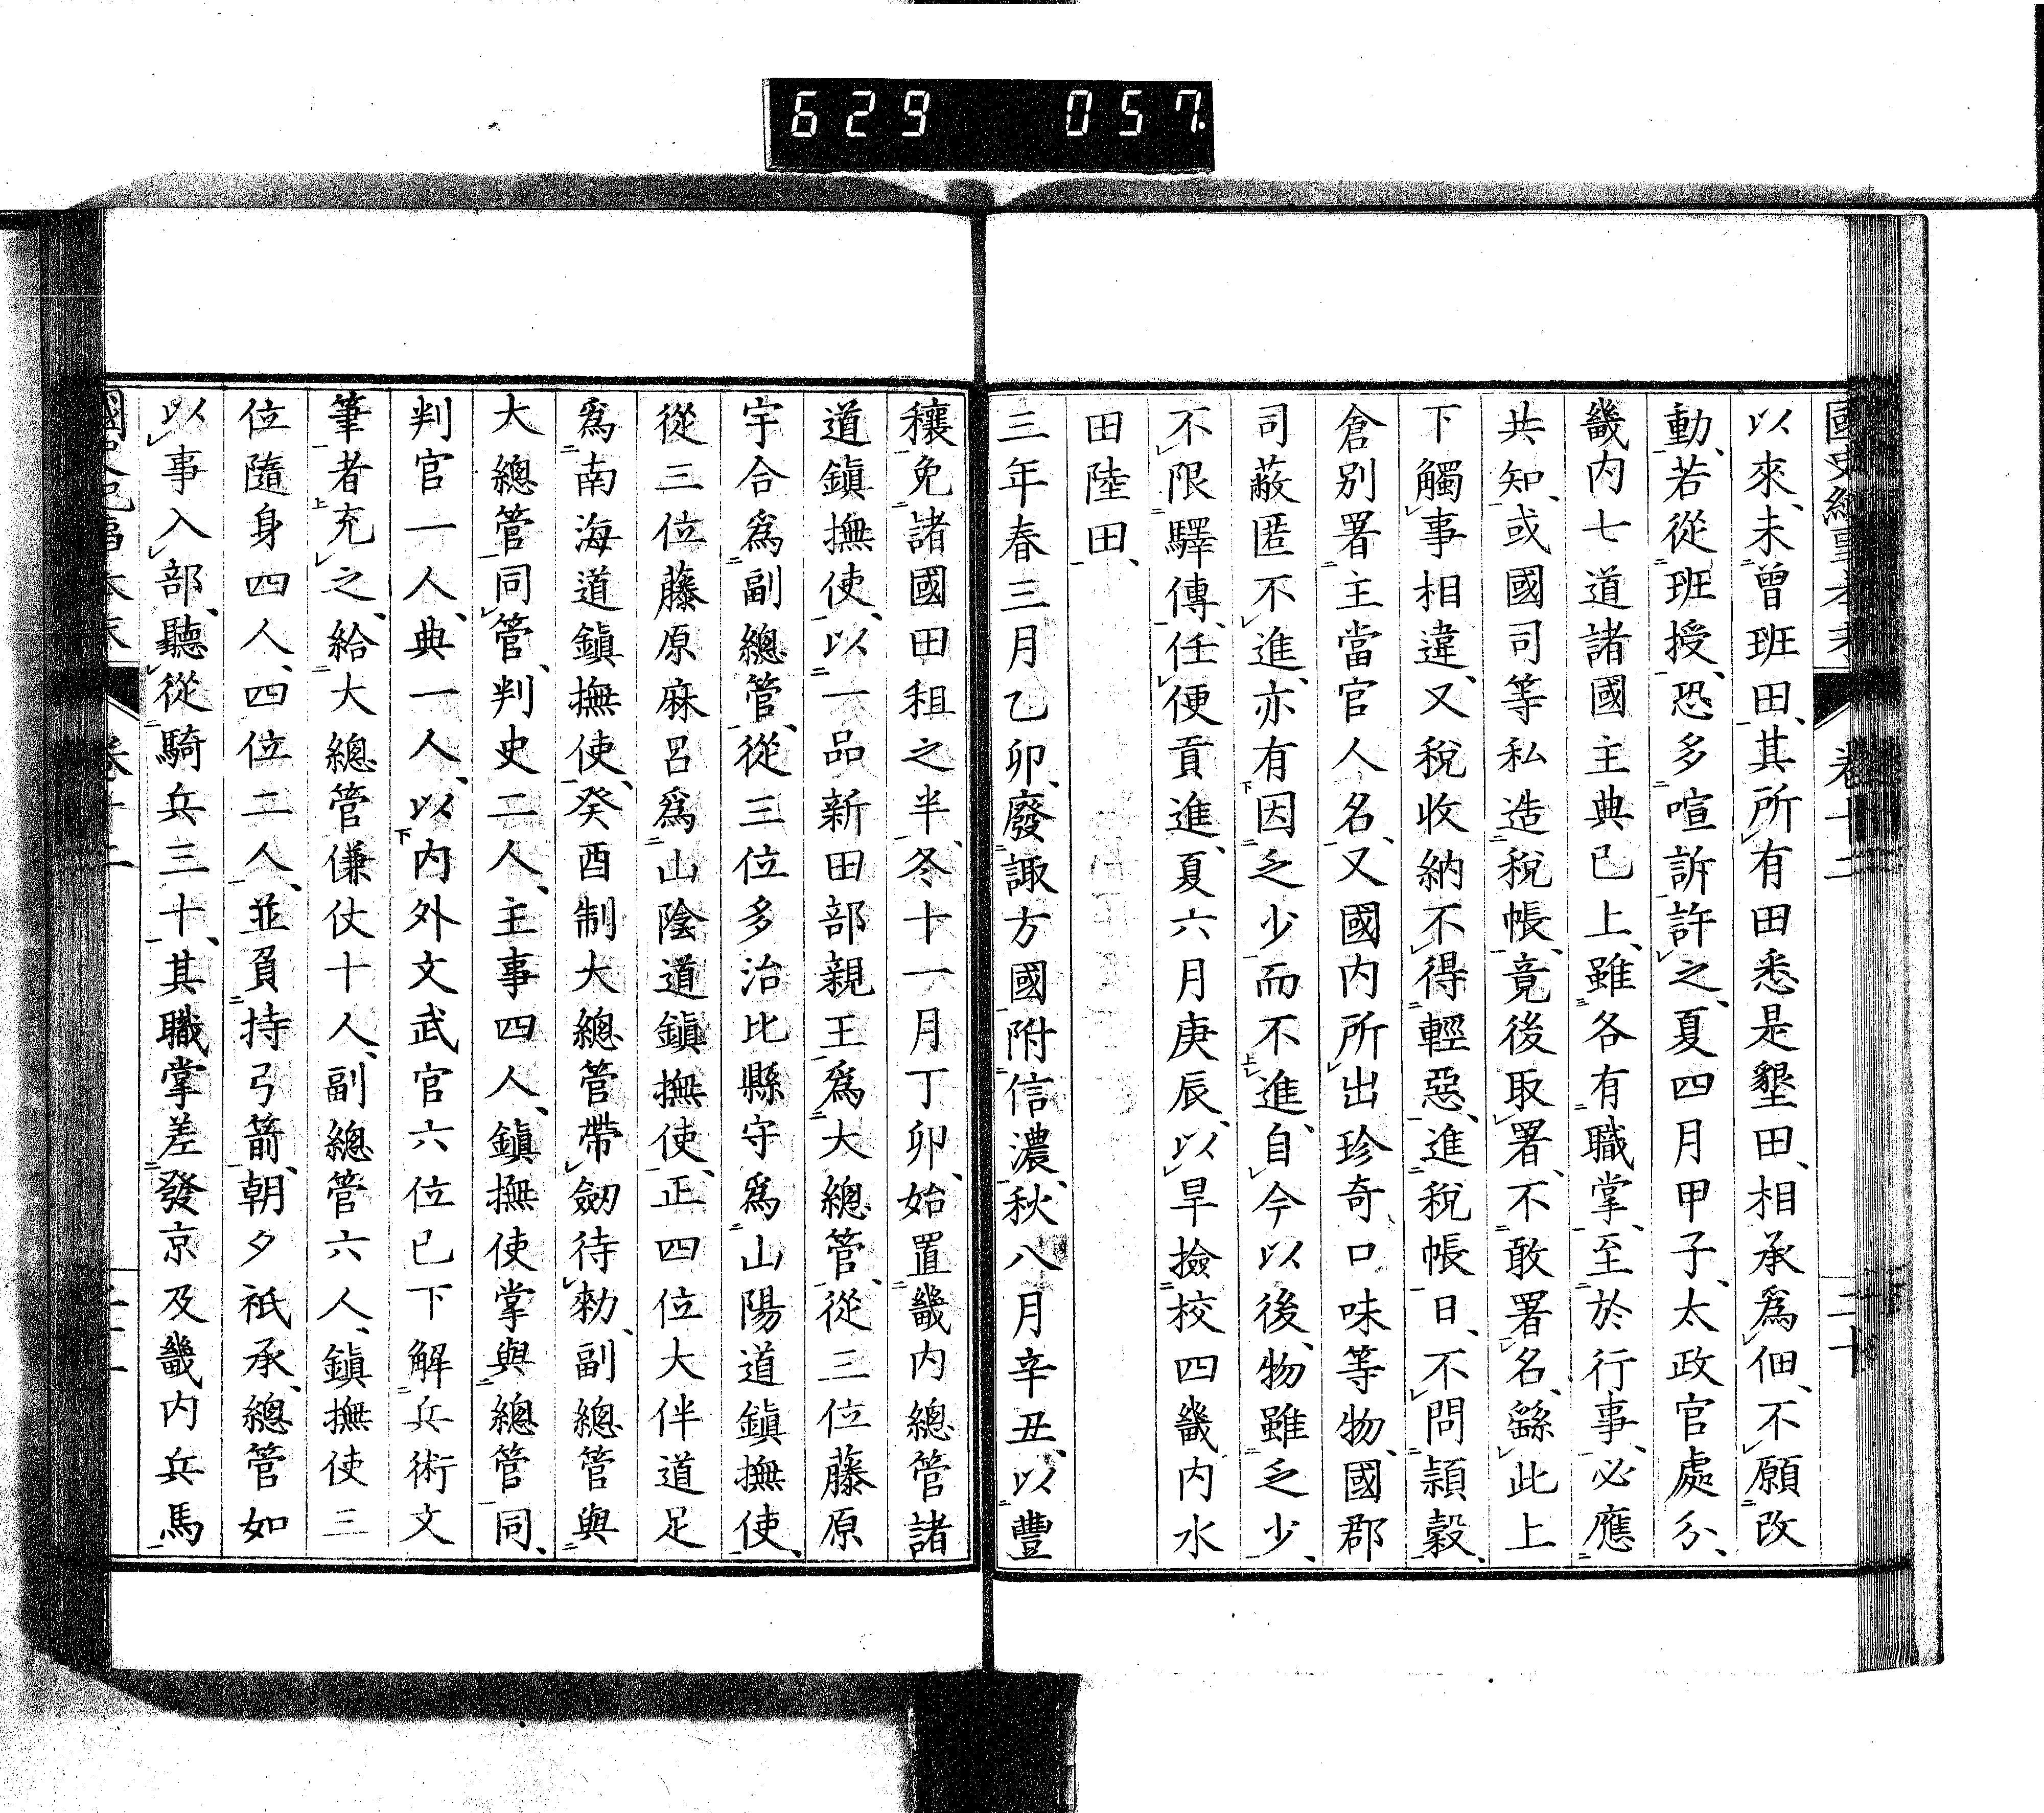 629 057
國史紀事本末 卷十二 二十
以來、未曾班田、其所有田悉是墾田、相承爲佃、不願改
動、若從班授、恐多喧訴許之、夏四月甲子、太政官處分、
畿内七道諸國主典已上、雖各有職掌、至於行事、必應
共知、或國司等私造稅帳、竟後取署、不敢署名、繇此上
下觸事相違、又稅收納不得輕惡、進稅帳日、不問頴穀、
倉别署主當官人名、又國内所出珍奇口味等物、國郡
司蔽匿不進、亦有因乏少而不進、自今以後、物雖乏少、
不限驛傳、任便貢進、夏六月庚辰、以旱撿校四畿内水
田陸田、
三年春三月乙卯、廢諏方國附信濃、秋八月辛丑、以豐
穰免諸國田租之半、冬十一月丁卯、始置畿内總管諸
道鎭撫使、以一品新田部親王爲大總管、從三位藤原
宇合爲副總管、從三位多治比縣守爲山陽道鎭撫使、
從三位藤原麻呂爲山陰道鎭撫使、正四位大伴道足
爲南海道鎭撫使、癸酉制大總管帶劒待勅、副總管與
大總管同管、判史二人、主事四人、鎭撫使掌與總管同、
判官一人、典一人、以内外文武官六位已下解兵術文
筆者充之、給大總管傔仗十人、副總管六人、鎭撫使三
位隨身四人、四位二人、並負持弓箭、朝夕祇承、總管如
以事入部、聽從騎兵三十、其職掌差發京及畿内兵馬